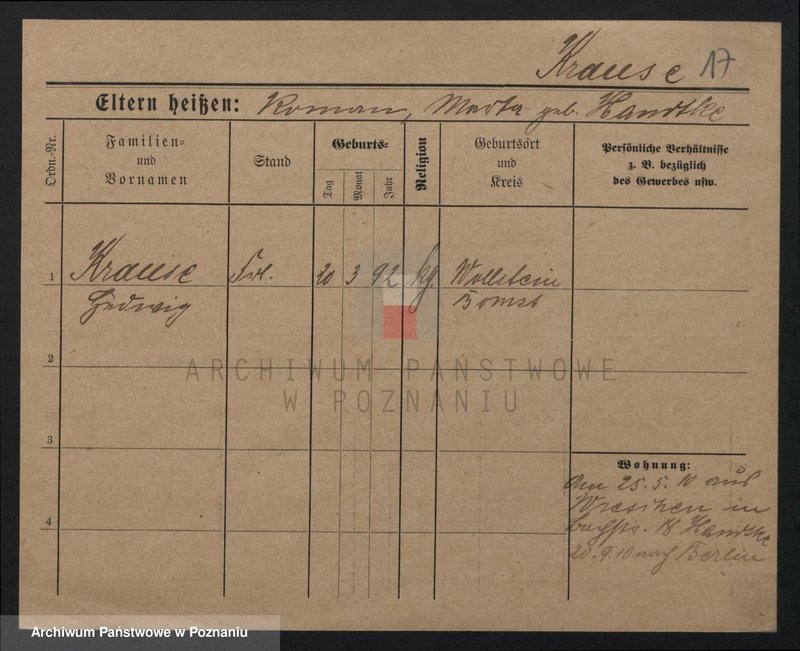 Krause 17
Eltern heißen: Roman, Marta geb. Handtke
Ordn.-Nr.
Familien-
und
Vornamen
Stand
Geburts-
Tag
Monat
Jahr
Religion
Geburtsort
und
Kreis
Persönliche Verhältnisse
z. B. bezüglich
des Gewerbes usw.
1
Krause
Hedwig
Frl.
20
3
92
kg.
Wollstein
Bomst
ARCHIWUM PAŃSTWOWE
W POZNANIU
2
3
4
Wohnung:
Am 25. 5. 10 aus
Wreschen in
Handtke
20. 9. 10 nach Berlin
Archiwum Państwowe w Poznaniu